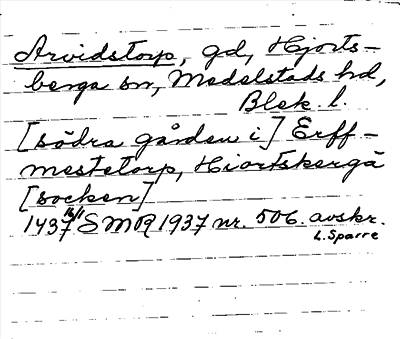 Arvidstorp, gd, Hjorts-
berga sn, Medelstads hd,
Blek. l.
[södra gården i] Erff-
mestetorp, Hiortsbergä
[socken]
1437 16/1 SMR 1937 nr. 506. avskr.
L. Sparre